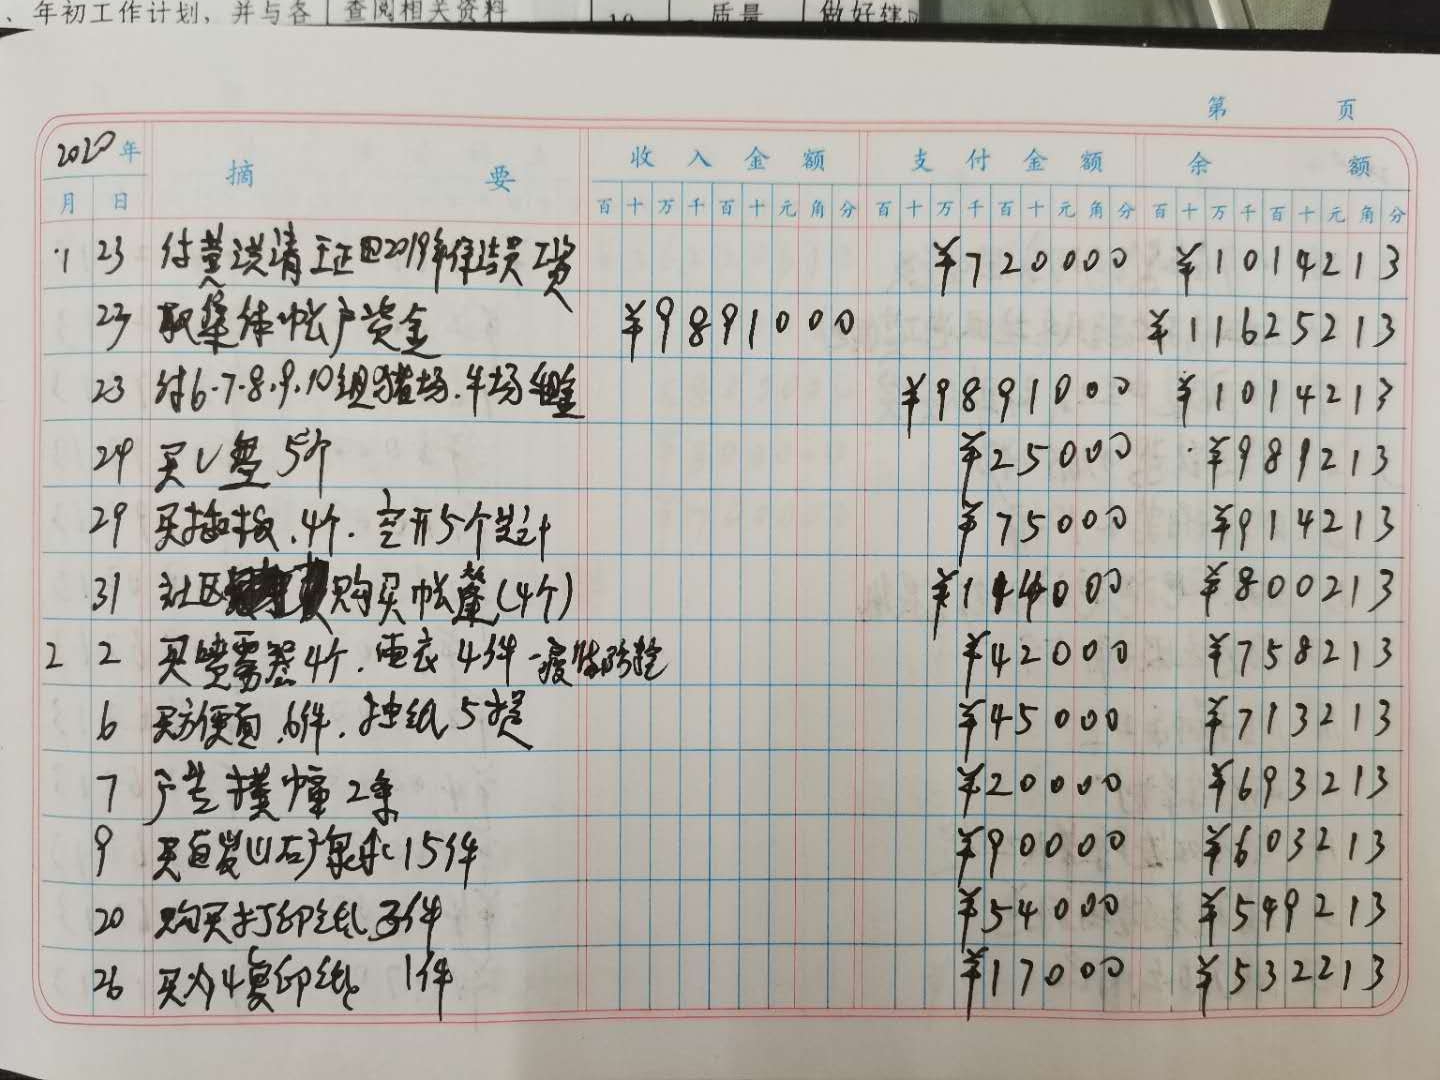 年初工作计划，并与各 查阅相关资料 质量 做好辖
第 页
2020年 摘 要 收入金额 支付金额 余 额
月 日 百十万千百十元角分 百十万千百十元角分 百十万千百十元角分
1 23 付黄洪清 2019年保洁员工资 ¥720000 ¥1014213
23 取集体帐户资金 ¥9891000 ¥11625213
23 付6.7.8.9.10组猪场.牛场租金 ¥9891000 ¥1014213
24 买U盘5个 ¥25000 ¥989213
29 买插板.4个.空开5个 ¥75000 ¥914213
31 社区购买帐篷(4个) ¥144000 ¥800213
2 2 买喷雾器4个.雨衣4件-疫情防控 ¥42000 ¥758213
6 买方便面.6件.抽纸5提 ¥45000 ¥713213
7 广告横幅2条 ¥20000 ¥693213
9 买百岁山矿泉水15件 ¥90000 ¥603213
20 购买打印纸3件 ¥54000 ¥549213
26 买A4复印纸 1件 ¥17000 ¥532213